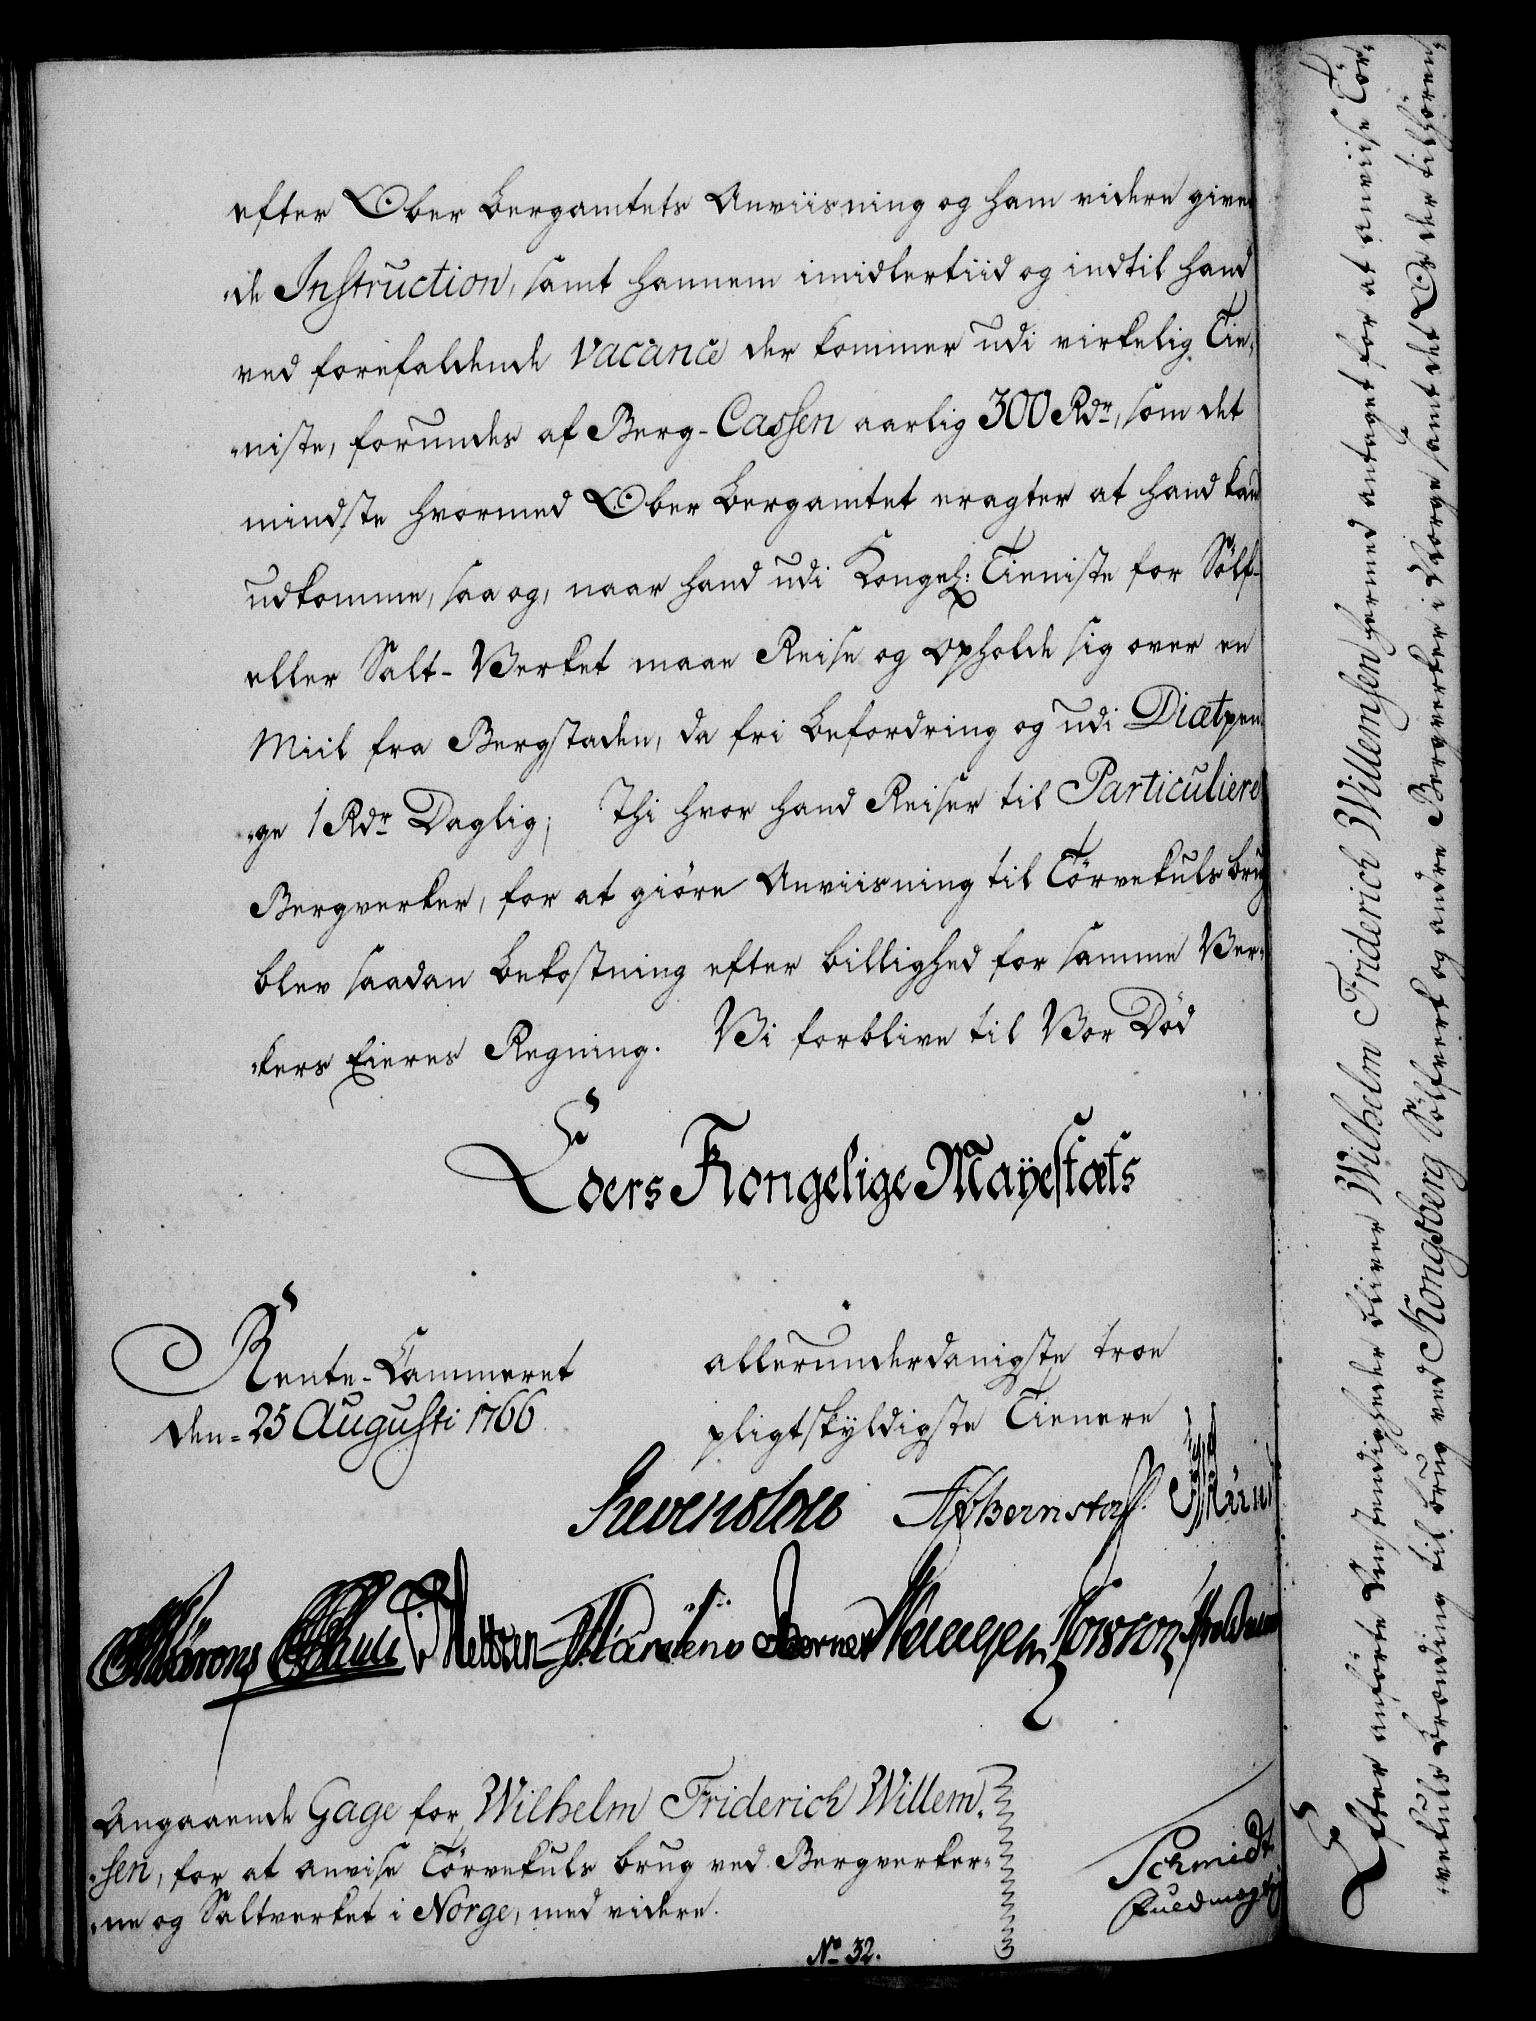 efter Ober Bergamtets Anviisning og ham videre given
„de Instruction, samt hannem imidlertiid og indtil hand
ved forefaldende vacance der kommer udi virkelig Tie„
„niste, forundes af Berg-Cassen aarlig 300 Rdr, som det
mindste hvormed Ober Bergamtet eragter at hand kand
udkomme, saa og, naar hand udi Kongel: Tieniste for Sölf-
eller Salt-Verket maae Reise og opholde sig over en
Miil fra Bergstaden, da fri befordring og udi Diætpen„
„ge 1 Rdr Daglig; Thi hvor hand Reiser til Particuliere
Bergverker, for at giöre Anviisning til Törvekuls brug
blev saadan bekostning efter billighed for samme Ver„
„kers Eieres Regning. Vi forblive til Vor Död
Eders Kongelige Mayestæts
Rente-Cammeret
den = 25 Augusti 1766.
allerunderdanigste troe
pligtskyldigste Tienere
Revenslow AGvBernstorff.
Berner
Angaaende Gage for Wilhelm Friderich Willem„
„sen, for at anvise Törvekuls brug ved Bergverker„
„ne og Saltverket i Norge, med videre.
Schmidt
Fuldmægtig
No 32.
Efter anförte Omstændigheder bliver Wilhelm Friderich Willemsen hermed antaget for at anviise Tör„
„vekuls Brænding til brug ved Kongsberg Sölfverk og andre Bergverker i Norge samt det Os der tilhören„